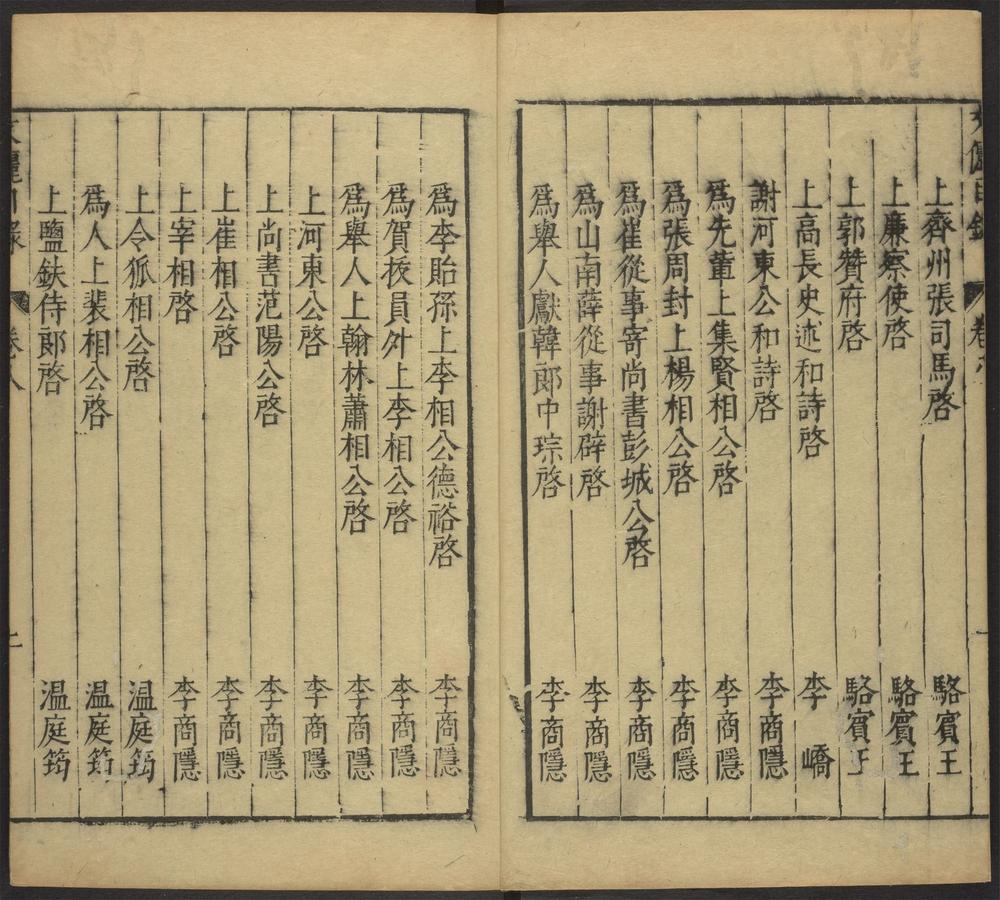 上齊州張司馬啓 駱賓王
上廉察使啓 駱賓王
上郭贊府啓 駱賓王
上高長史述和詩啓 李嶠
謝河東公和詩啓 李商隱
爲先輩上集賢相公啓 李商隱
爲張周封上楊相公啓 李商隱
爲崔從事寄尚書彭城公啓 李商隱
爲山南薛從事謝辟啓 李商隱
爲舉人獻韓郎中琮啓 李商隱
爲李貽孫上李相公德裕啓 李商隱
爲賀拔員外上李相公啓 李商隱
爲舉人上翰林蕭相公啓 李商隱
上河東公啓 李商隱
上尚書范陽公啓 李商隱
上崔相公啓 李商隱
上宰相啓 李商隱
上令狐相公啓 温庭筠
爲人上裴相公啓 温庭筠
上鹽鈇侍郎啓 温庭筠